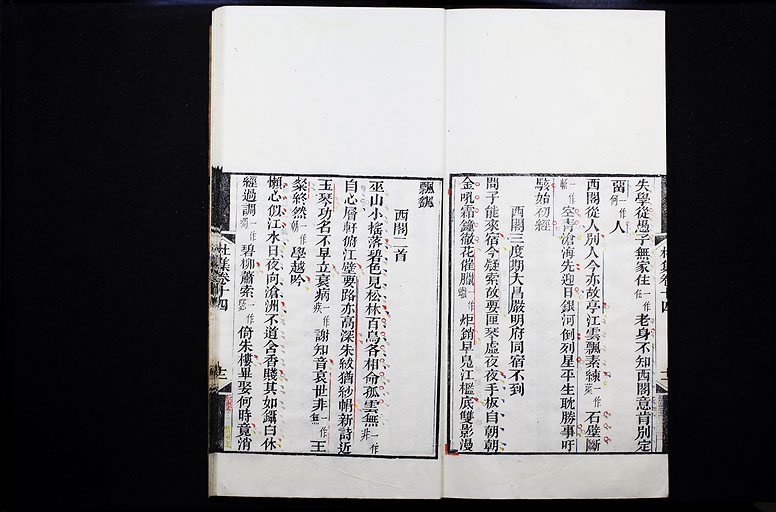 失學從愚子無家住一作任老身不知西閣意肯別定
留一作何人
西閣從人別人今亦故亭江雲飄素練一作葉石壁斷
一作斬空青滄海先迎日銀河倒列星平生耽勝事吁
駭始初經
西閣三度期大昌嚴明府同宿不到
問子能來宿今疑索故要匣琴虛夜夜手板自朝朝
金吼霜鐘徹花催臘一作蠟炬銷早鳧江檻底雙影漫
飄颻
西閣二首
巫山小搖落碧色見松林百鳥各相命孤雲無一作非
自心層軒俯江壁要路亦高深朱紱猶紗帽新詩近
玉琴功名不早立衰病一作疾謝知音哀世非一作無王
粲終然一作朝學越吟
懶心似江水日夜向滄洲不道含香賤其如鑷白休
經過調一作凋碧柳蕭索一作瑟倚朱樓畢娶何時竟消
杜集卷十四
十二